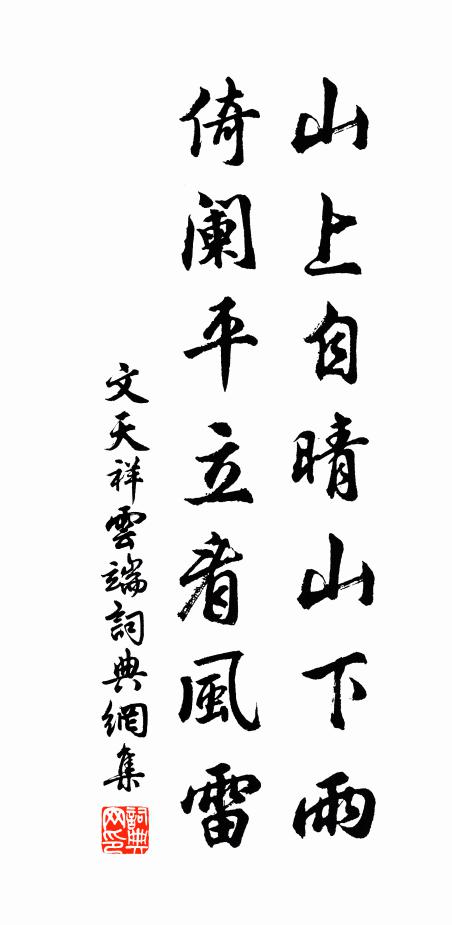 山上自晴山下雨
倚阑平立看風雷
文天祥雲端詞典網集
詞典网印